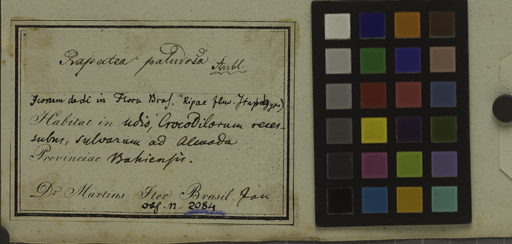 Rapatea paludosa Aubl.
Iconem dedi in Flora Bras. "Ripae fluv. Itapagipe)
Habitat in udis, Crocodilorum reces-
subus, sylvarum ad Almada
Provinciae Bahiensis.
Dr Martius Iter Brasil. Jan
obs. n. 2084